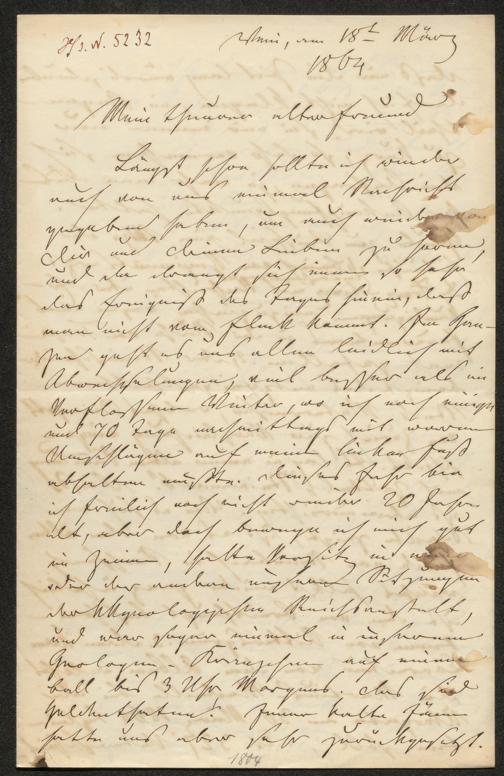 Hs. N. 5232
Wien, am 18t März
1864
Mein theurer alter Freund
Längst schon sollte ich wieder
auch von uns einmal Nachricht
gegeben haben, um auch wieder von
dir und deinen Lieben zu hören,
und da drängt sich immer so sehr
das Ereigniß des Tages hinein, daß
man nicht vom Fleck kommt. Im Gan-
zen geht es uns allen leidlich mit
Abwechselungen, viel besser als im
verflossenen Winter, wo ich noch einige
und 70 Tage nachmittags mit warmen
Umschlägen auf meinen linken Fuß
abhalten mußte. Dieses Jahr bin
ich freilich noch nicht wieder 20 Jahre
alt, aber doch bewege ich mich gut
im Zimmer, halte Vorsitz in
oder der andern unserer Sitzungen
der kkgeologischen Reichsanstalt,
und war sogar einmal in unserem
Geologen-Kränzchen auf einem
ball bis 3 Uhr Morgens. Das sind
Heldenthaten! Jene kalte Jänner
hatte uns aber sehr zurückgesetzt.
1864